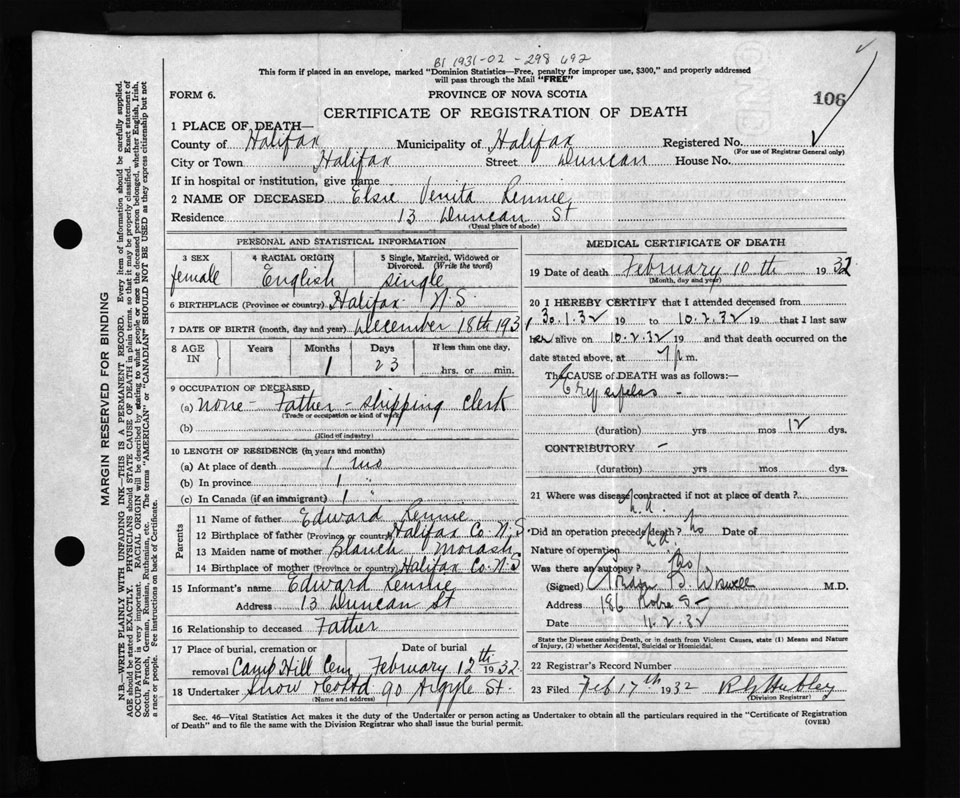 B1 1931-02-298 692
This form if placed in an envelope, marked "Dominion Statistics—Free, penalty for improper use, $300," and properly addressed
will pass through the Mail "FREE"
FORM 6. PROVINCE OF NOVA SCOTIA
106
CERTIFICATE OF REGISTRATION OF DEATH
1 PLACE OF DEATH—
County of Halifax Municipality of Halifax Registered No.
(For use of Registrar General only)
City or Town Halifax Street Duncan House No.
If in hospital or institution, give name
2 NAME OF DECEASED Elsie Venita Rennie
Residence 13 Duncan St
(Usual place of abode)
PERSONAL AND STATISTICAL INFORMATION
3 SEX 4 RACIAL ORIGIN 5 Single, Married, Widowed or
Divorced. (Write the word)
female English single
6 BIRTHPLACE (Province or country) Halifax N.S.
7 DATE OF BIRTH (month, day and year) December 18th 193
8 AGE IN Years Months Days If less than one day,
1 23 hrs. or min.
9 OCCUPATION OF DECEASED
(a) none - Father - shipping clerk
(Trade or occupation or kind of work)
(b)
(Kind of industry)
10 LENGTH OF RESIDENCE (in years and months)
(a) At place of death 1 mo
(b) In province 1 "
(c) In Canada (if an immigrant) 1
Parents
11 Name of father Edward Rennie
12 Birthplace of father (Province or country) Halifax Co N.S
13 Maiden name of mother Blanch Morash
14 Birthplace of mother (Province or country) Halifax Co. N.S
15 Informant's name Edward Rennie
Address 13 Duncan St
16 Relationship to deceased Father
17 Place of burial, cremation or Date of burial
removal Camp Hill Cem February 12th 1932
18 Undertaker Snow 90 Argyle St.
(Name and address)
MEDICAL CERTIFICATE OF DEATH
19 Date of death February 10th 1932
(Month, day and year)
20 I HEREBY CERTIFY that I attended deceased from
30.1.32 19 to 10.2.32 19 that I last saw
her alive on 10.2.32 19 and that death occurred on the
date stated above, at 7 p m.
The CAUSE OF DEATH was as follows:—
Erysipelas -
(duration) yrs mos 12 dys.
CONTRIBUTORY -
(duration) yrs mos dys.
21 Where was disease contracted if not at place of death?
Did an operation precede death? no Date of
Nature of operation
Was there an autopsy? no
(Signed) M.D.
Address 186
Date 11.2.32
State the Disease causing Death, or in death from Violent Causes, state (1) Means and Nature
of Injury, (2) whether Accidental, Suicidal or Homicidal.
22 Registrar's Record Number
23 Filed Feb 17th 1932
(Division Registrar)
Sec. 46—Vital Statistics Act makes it the duty of the Undertaker or person acting as Undertaker to obtain all the particulars required in the "Certificate of Registration
of Death" and to file the same with the Division Registrar who shall issue the burial permit. (OVER)
MARGIN RESERVED FOR BINDING
N.B.—WRITE PLAINLY WITH UNFADING INK—THIS IS A PERMANENT RECORD. Every item of information should be carefully supplied.
AGE should be stated EXACTLY. PHYSICIANS should STATE CAUSE OF DEATH in plain terms, so that it may be properly classified. Exact statement of
OCCUPATION is very important. RACIAL ORIGIN will be described by stating to what people or race the deceased person belonged, whether English, Irish,
Scotch, French, German, Russian, Ruthenian, etc. The terms "AMERICAN" or "CANADIAN" SHOULD NOT BE USED as they express citizenship but not
a race or people. Fee instructions on back of Certificate.